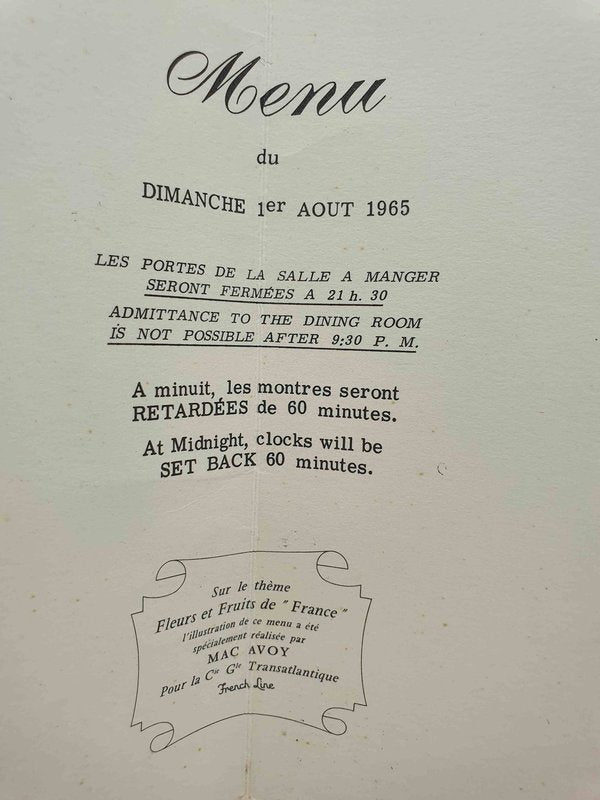 Menu
du
DIMANCHE 1er AOUT 1965
LES PORTES DE LA SALLE A MANGER
SERONT FERMÉES A 21 h. 30
ADMITTANCE TO THE DINING ROOM
IS NOT POSSIBLE AFTER 9:30 P. M.
A minuit, les montres seront
RETARDÉES de 60 minutes.
At Midnight, clocks will be
SET BACK 60 minutes.
Sur le thème
Fleurs et Fruits de " France "
l'illustration de ce menu a été
spécialement réalisée par
MAC AVOY
pour la Cie Gle Transatlantique
French Line